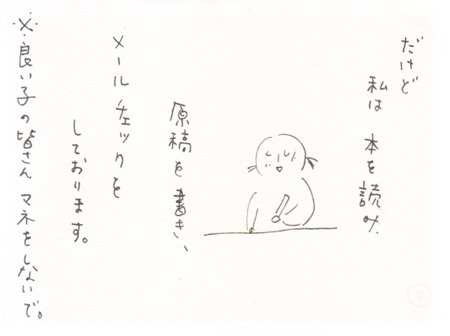 だけど
私は 本を読み
原稿を書き、
メールチェックを
しております。
※良い子の皆さん マネをしないで。